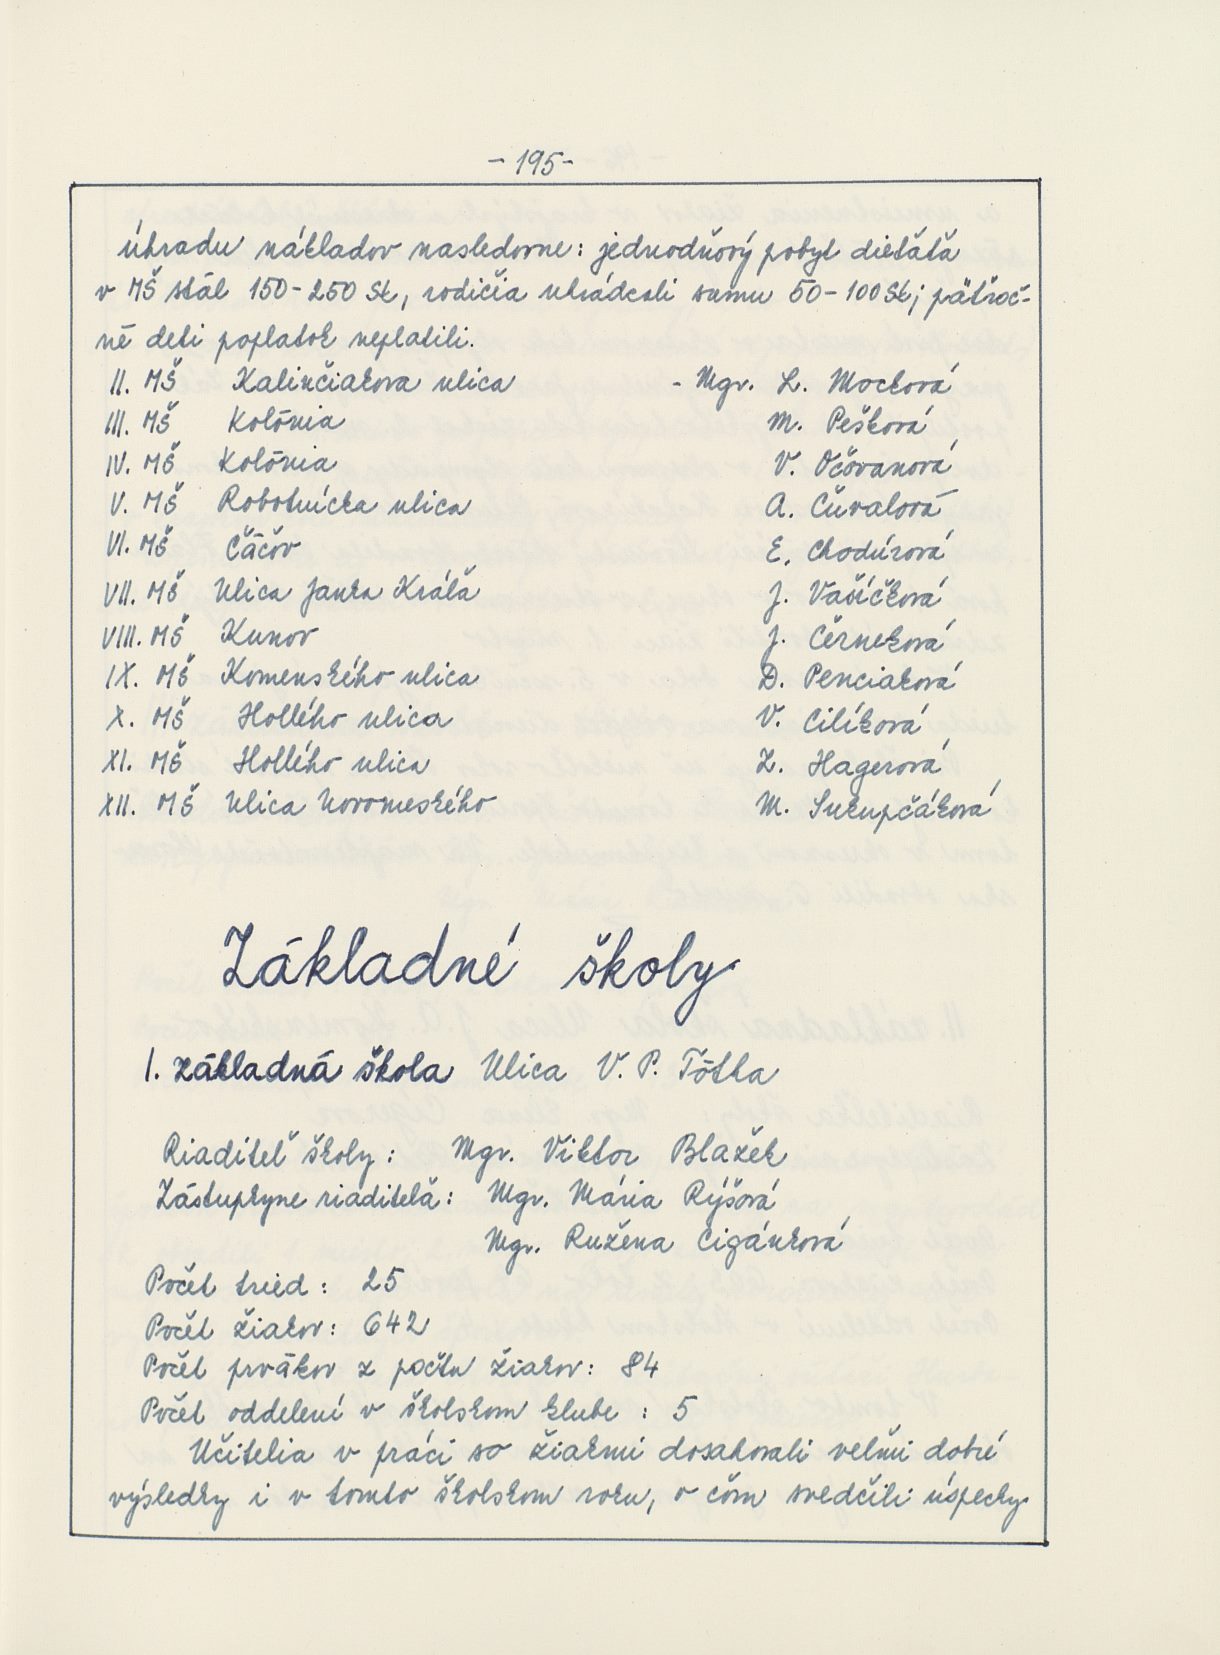 - 195 -
úhradu nákladov nasledovne: jednodňový pobyt dieťaťa
v MŠ stál 150-250 Sk, rodičia uhrádzali sumu 50-100 Sk; päťroč-
né deti poplatok neplatili.
II. MŠ Kalinčiakova ulica - Mgr. L. Mocková
III. MŠ Kolónia M. Pešková
IV. MŠ Kolónia V. Očovanová
V. MŠ Robotnícka ulica A. Čuvalová
VI. MŠ Čáčov E. Chodúrová
VII. MŠ Ulica Janka Kráľa J. Vašíčková
VIII. MŠ Kunov J. Černeková
IX. MŠ Komenského ulica D. Penciaková
X. MŠ Hollého ulica V. Cilíková
XI. MŠ Hollého ulica Z. Hagerová
XII. MŠ Ulica Novomeského M. Sukupčáková
Základné školy
I. základná škola Ulica V. P. Tótha
Riaditeľ školy: Mgr. Viktor Blažek
Zástupkyne riaditeľa: Mgr. Mária Rýšová
Mgr. Ružena Cigánková
Počet tried: 25
Počet žiakov: 642
Počet prvákov z počtu žiakov: 84
Počet oddelení v školskom klube : 5
Učitelia v práci so žiakmi dosahovali veľmi dobré
výsledky i v tomto školskom roku, o čom svedčili úspechy